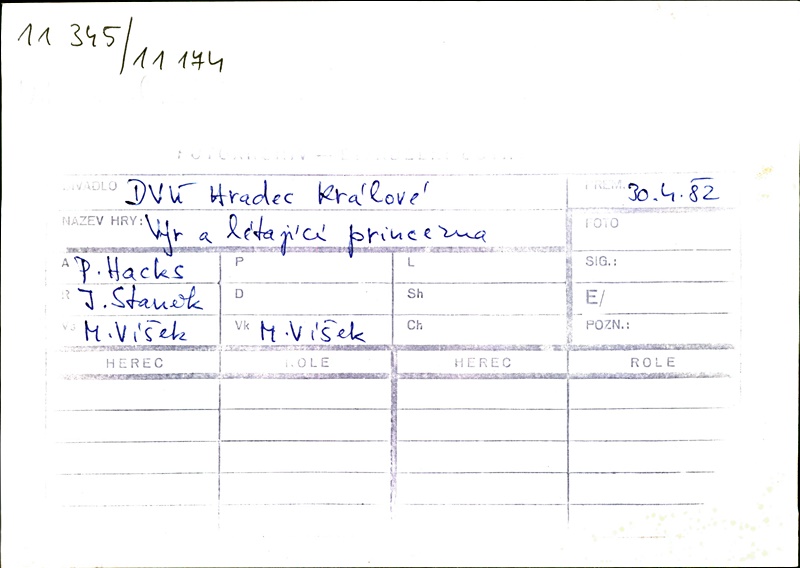 11 345/11 174
DIVADLO DVÚ Hradec Králové PREM. 30.4.82
NÁZEV HRY: Výr a létající princezna FOTO
A P. Hacks P L SIG.:
R J. Stanek D Sh E/
M. Víšek Vk M. Víšek Ch POZN.:
HEREC ROLE HEREC ROLE